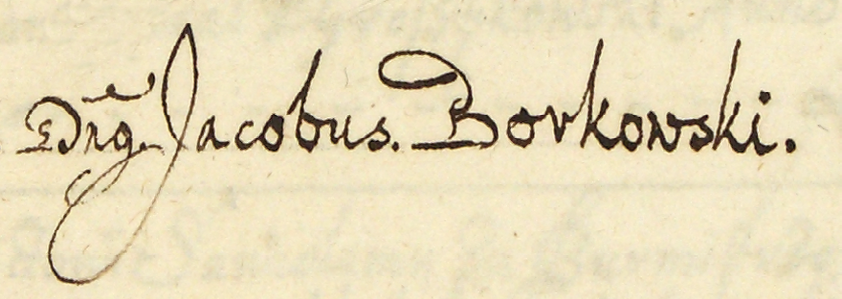 Dng. Jacobus. Borkowski.